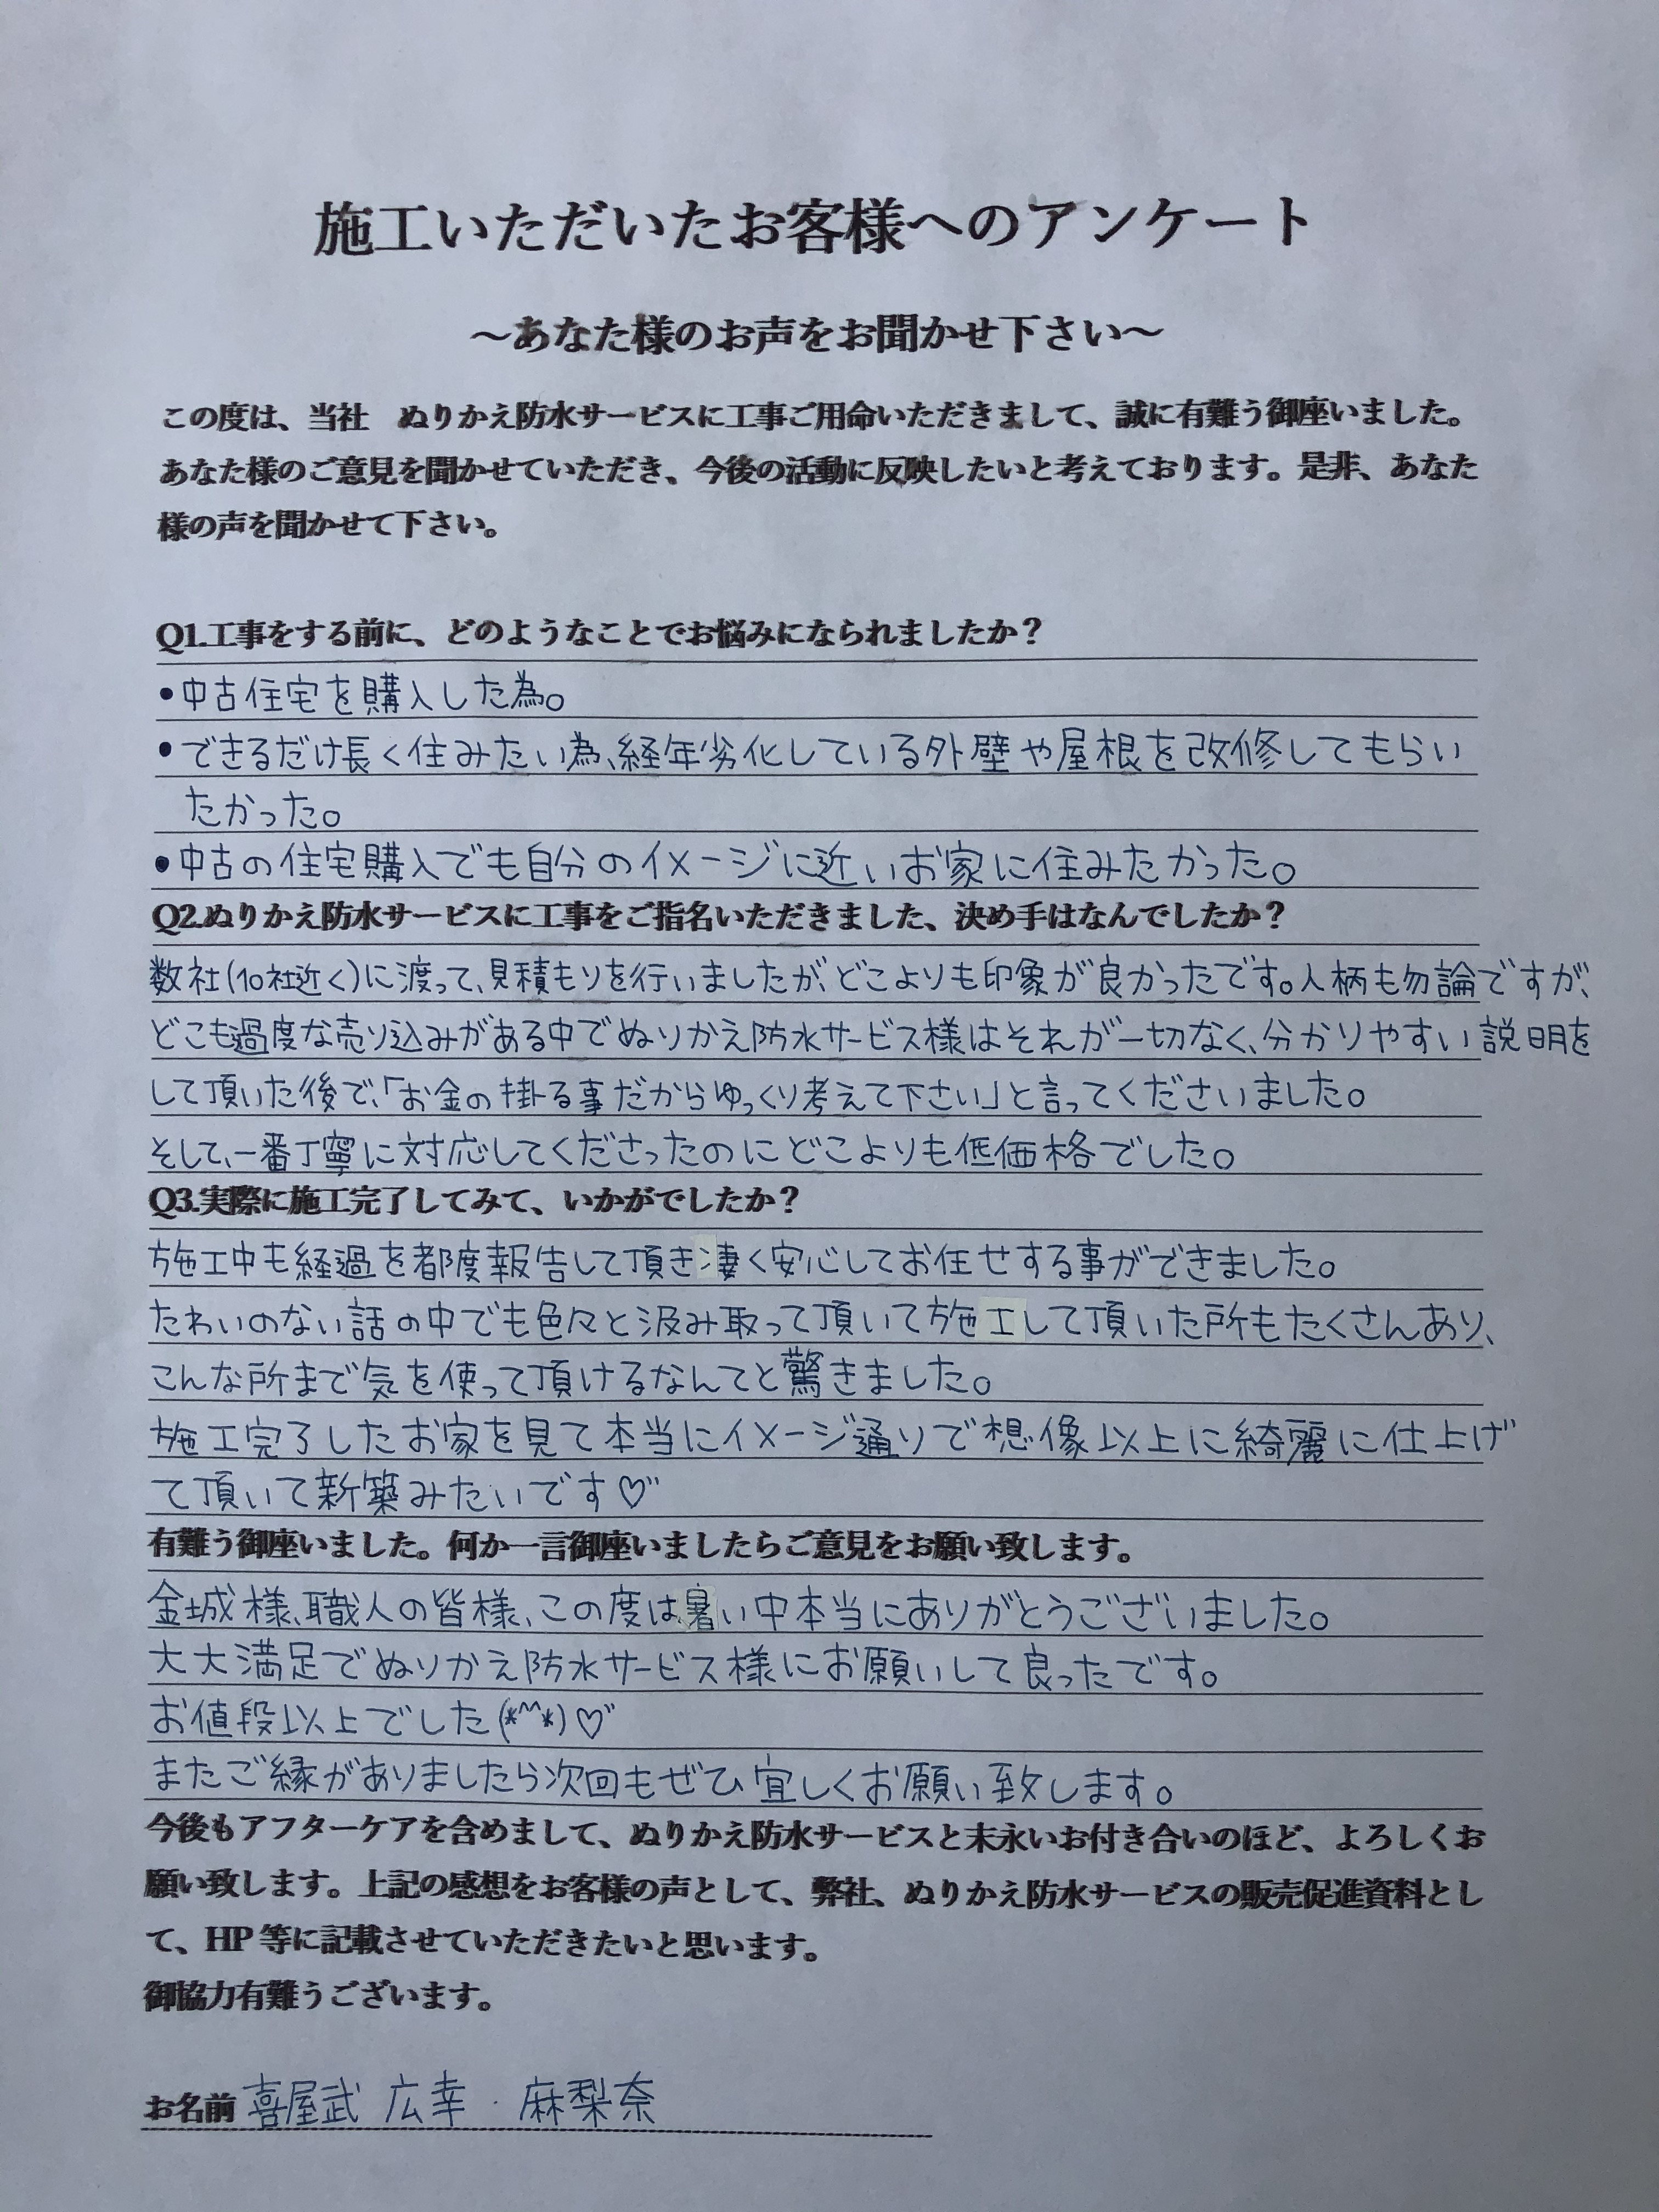 施工いただいたお客様へのアンケート
～あなた様のお声をお聞かせ下さい～
この度は、当社　ぬりかえ防水サービスに工事ご用命いただきまして、誠に有難う御座いました。
あなた様のご意見を聞かせていただき、今後の活動に反映したいと考えております。是非、あなた
様の声を聞かせて下さい。
Q1.工事をする前に、どのようなことでお悩みになられましたか？
・中古住宅を購入した為。
・できるだけ長く住みたい為、経年劣化している外壁や屋根を改修してもらい
たかった。
・中古の住宅購入でも自分のイメージに近いお家に住みたかった。
Q2.ぬりかえ防水サービスに工事をご指名いただきました、決め手はなんでしたか？
数社(10社近く)に渡って、見積もりを行いましたが、どこよりも印象が良かったです。人柄も勿論ですが、
どこも過度な売り込みがある中でぬりかえ防水サービス様はそれが一切なく、分かりやすい説明を
して頂いた後で、「お金の掛る事だからゆっくり考えて下さい」と言ってくださいました。
そして、一番丁寧に対応してくださったのにどこよりも低価格でした。
Q3.実際に施工完了してみて、いかがでしたか？
施工中も経過を都度報告して頂き凄く安心してお任せする事ができました。
たわいのない話の中でも色々と汲み取って頂いて施工して頂いた所もたくさんあり、
こんな所まで気を使って頂けるなんてと驚きました。
施工完了したお家を見て本当にイメージ通りで想像以上に綺麗に仕上げ
て頂いて新築みたいです♡
有難う御座いました。何か一言御座いましたらご意見をお願い致します。
金城様、職人の皆様、この度は暑い中本当にありがとうございました。
大大満足でぬりかえ防水サービス様にお願いして良ったです。
お値段以上でした(*^^*)♡
またご縁がありましたら次回もぜひ宜しくお願い致します。
今後もアフターケアを含めまして、ぬりかえ防水サービスと末永いお付き合いのほど、よろしくお
願い致します。上記の感想をお客様の声として、弊社、ぬりかえ防水サービスの販売促進資料とし
て、HP 等に記載させていただきたいと思います。
御協力有難うございます。
お名前 喜屋武 広幸・麻梨奈